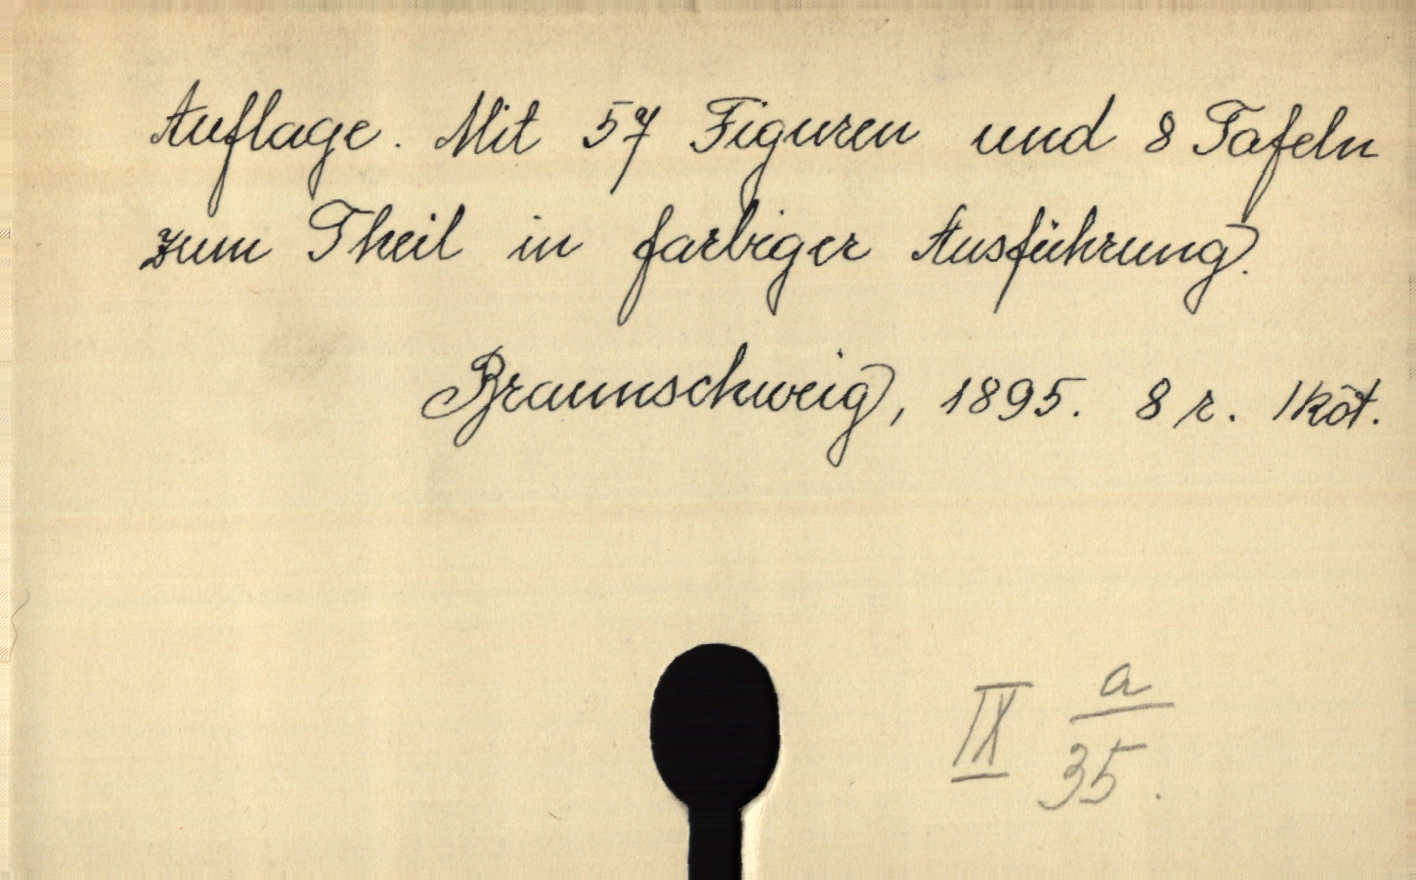 Auflage. Mit 57 Figuren und 8 Tafeln
zum Theil in farbiger Ausführung.
Braunschweig, 1895. 8 r. 1 köt.
IX a/35.